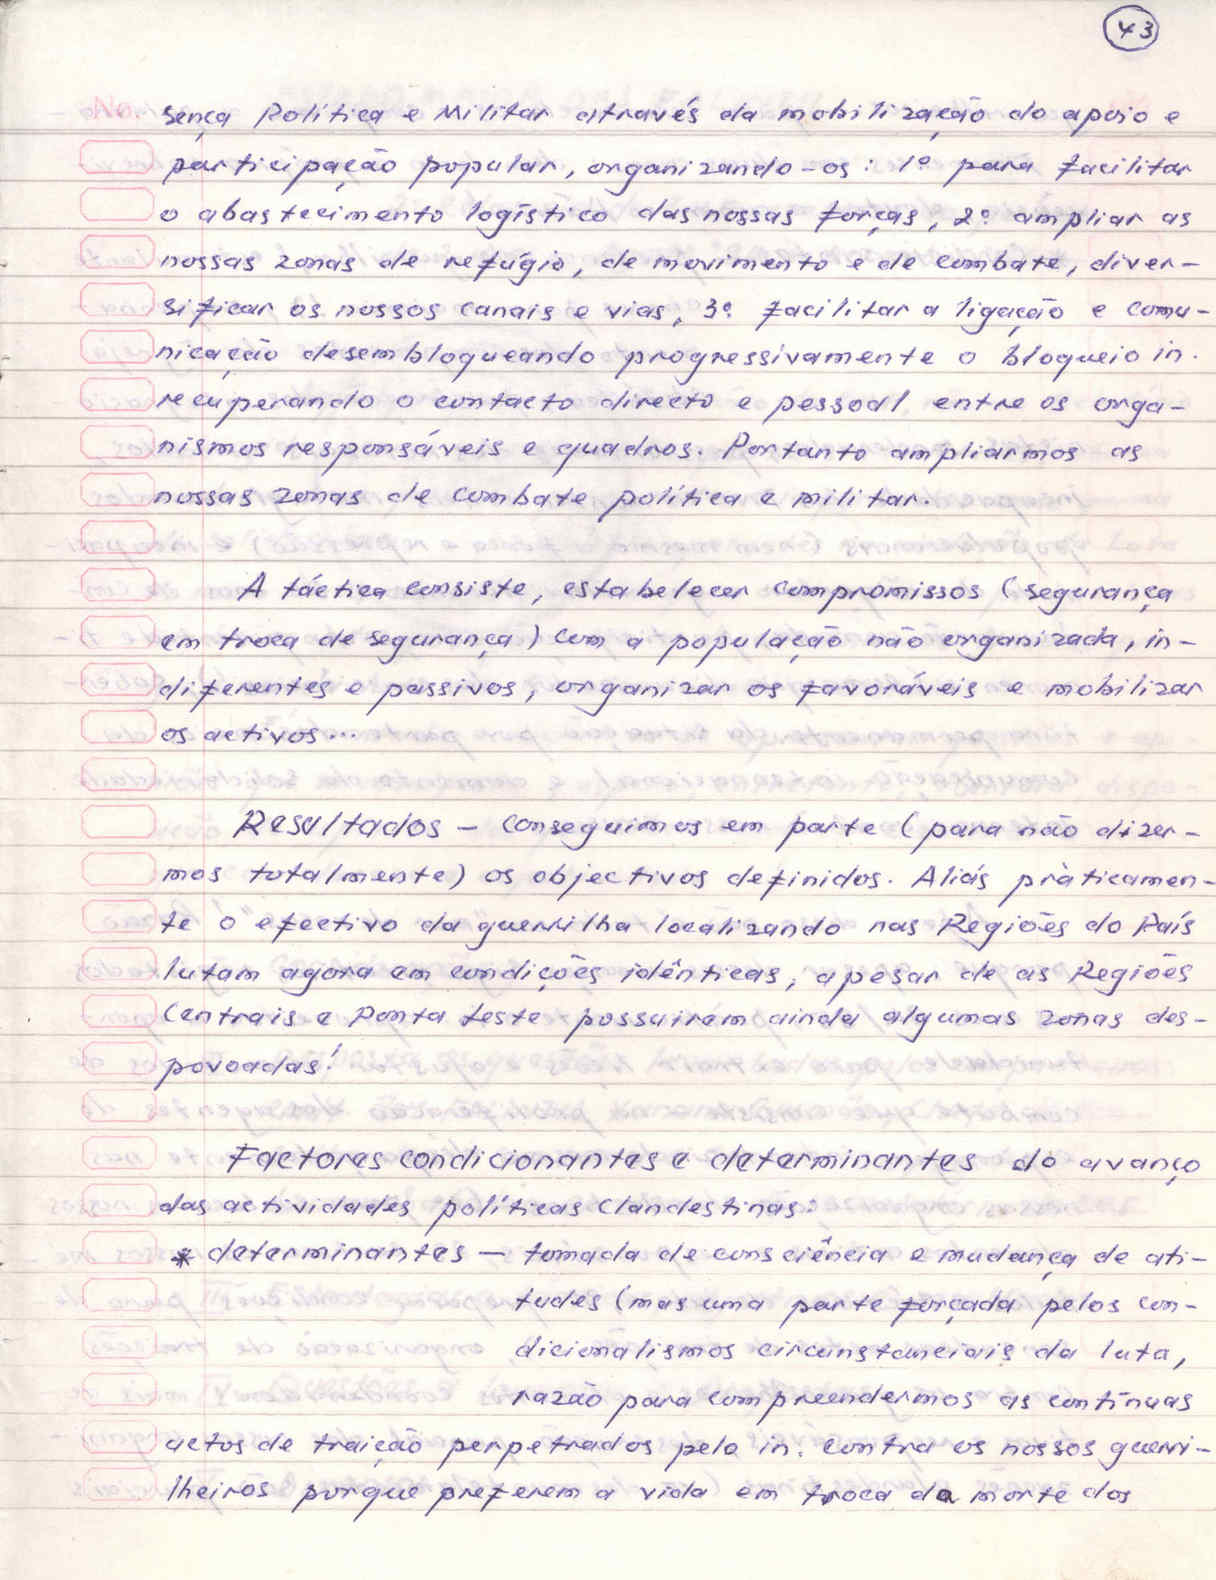 43
sença Política e Militar através da mobilização do apoio e
participação popular, organizando-os: 1º para facilitar
o abastecimento logístico das nossas forças, 2º ampliar as
nossas zonas de refúgio, de movimento e de combate, diver-
sificar os nossos canais e vias, 3º facilitar a ligação e comu-
nicação desembloqueando progressivamente o bloqueio in.
recuperando o contacto directo e pessoal entre os orga-
nismos responsáveis e quadros. Portanto ampliarmos as
nossas zonas de combate política e militar.
A táctica consiste, estabelecer compromissos (segurança
em troca de segurança) com a população não organizada, in-
diferentes e passivos, organizar os favoráveis e mobilizar
os activos...
Resultados - conseguimos em parte (para não dizer-
mos totalmente) os objectivos definidos. Aliás pràticamen-
te o efectivo da guerrilha localizando nas Regiões do País
lutam agora em condições idênticas, apesar de as Regiões
Centrais e Ponta Leste possuirem ainda algumas zonas des-
povoadas!
Factores condicionantes e determinantes do avanço
das actividades políticas clandestinas:
* determinantes - tomada de consciência e mudança de ati-
tudes (mas uma parte forçada pelos con-
dicionalismos circunstanciais da luta,
razão para compreendermos as contínuas
actos de traição perpetrados pelo in. contra os nossos guerri-
lheiros porque preferem a vida em troca da morte dos